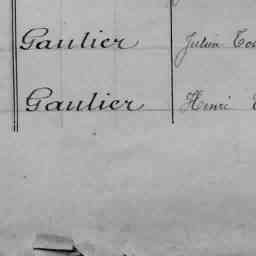 Gaulier Julien
Gaulier Henri